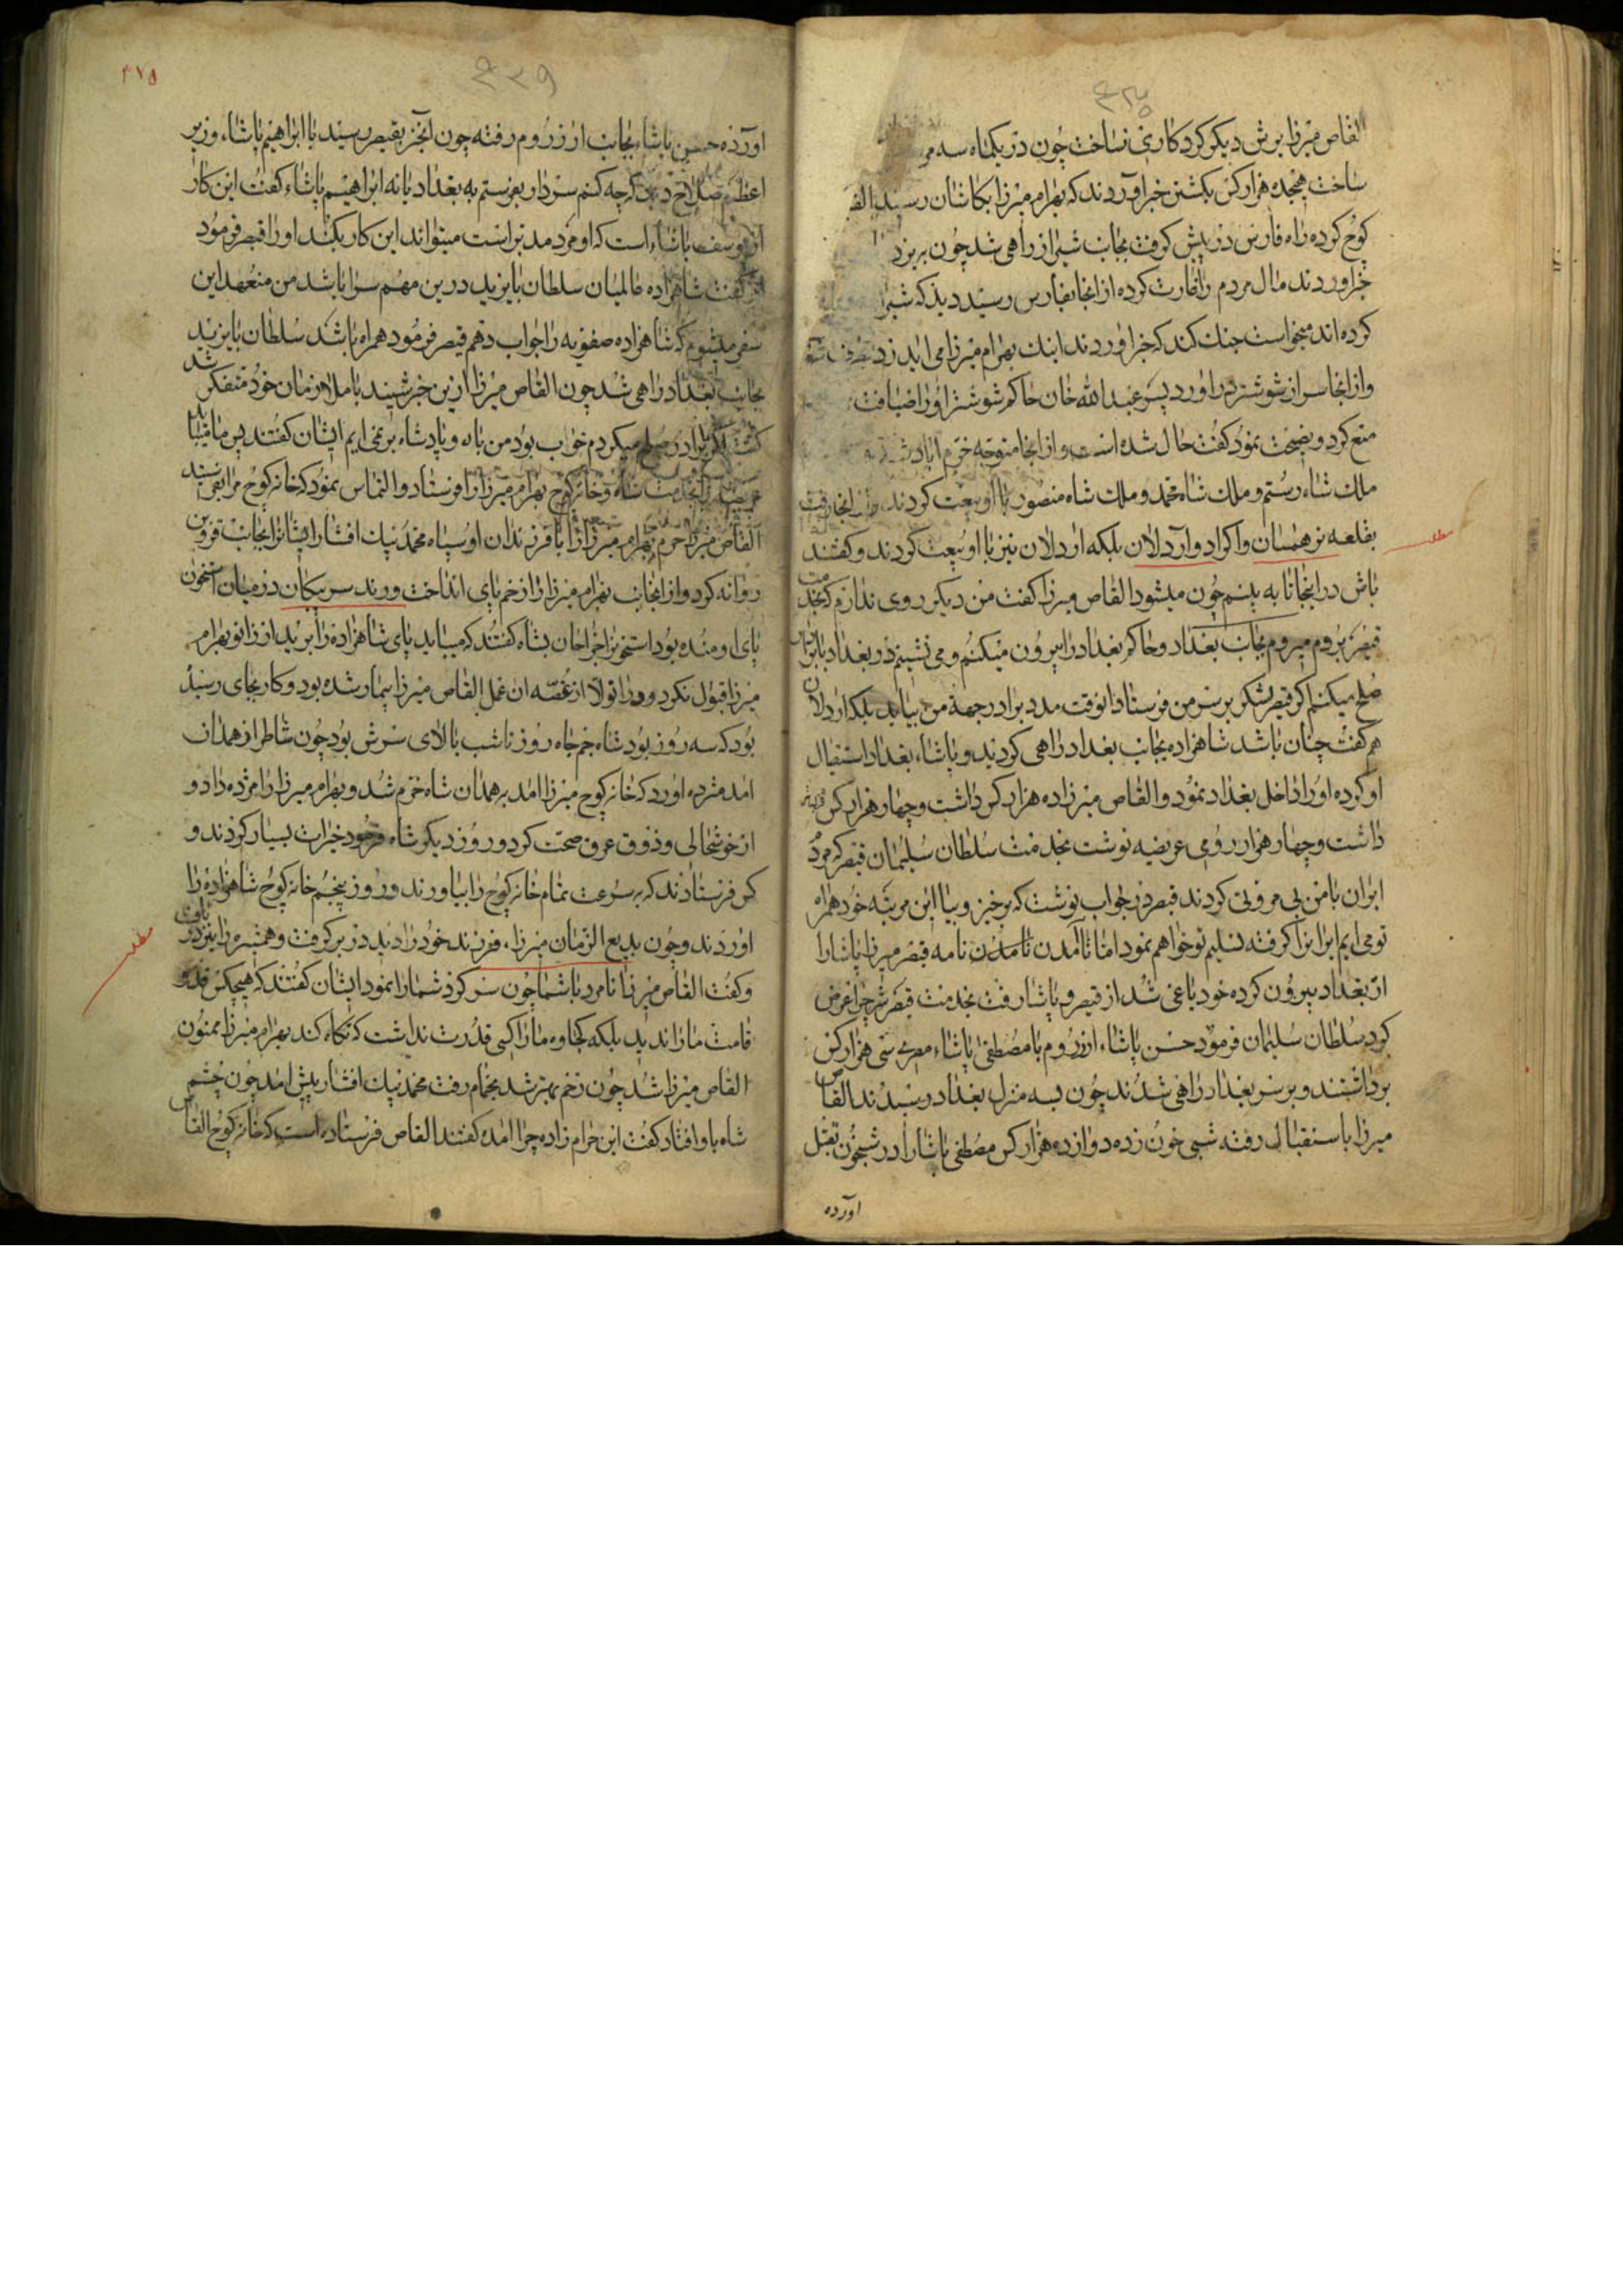 القاص میرزا یرش دیکر کرد کاری نساخت چون در یکماه سه
ساخت هیجده هزار کس بکشتن خبر آوردند که بهرام میرزا بکاشان رسید
کوچ کرده راه فارس در پیش کرفت بجانب شیراز راهی شد چون
خبر اوردند مال مردم را غارت کرده از انجا بفارس رسید دید که
کرده اند میخواست جنك کند که خبر اوردند اینك بهرام میرزا می اید
و از انجا سر از شوشتر در اورد پسر عبد الله خان حاکم شوشتر او را ضیافت
منع کرد و نصیحت نمود کفت حال شده است و از انجا متوجه خرم اباد
ملك شاه رستم و ملك شاه محمد و ملك شاه منصور با او بیعت کردند
بقلعه و اکراد و آردلان بلکه اردلان نیز با او بیعت کردند و کفتند
باش در اینجا تا به بینم چون میشود القاص میرزا کفت من دیکر روی ندارم که بخدمت
قیصر بروم میروم بجانب بغداد و حاکم بغداد را بیرون میکنم و می نشینم در بغداد
صلح میکنم اکر قیصر لشکر بر سر من فرستاد انوقت مدد برادر جهة من بیاید ملك اردلان
هم کفت چنان باشد شاهزاده بجانب بغداد راهی کردید و پاشاء بغداد استقبال
او کرده او را داخل بغداد نمود و القاص میرزا ده هزار کس داشت و چهار هزار کس
داشت و چهار هزار رومی عریضه نوشت بخدمت سلطان سلیمان قیصر که مردم
ایران با من بی مروتی کردند قیصر در جواب نوشت که برخیز و بیا این مرتبه خود همراه
تو می ایم ایران را کرفته تسلیم تو خواهم نمود اما تا آمدن نامه قیصر میرزا پاشا را
از بغداد بیرون کرده خود یاغی شد از قیصر و پاشا رفت بخدمت قیصر عرض
کرد سلطان سلیمان فرمود حسن پاشاء ارزروم با مصطفی پاشاء مصری سی هزار کس
برداشتند و بر سر بغداد راهی شدند چون بسه منزل بغداد رسیدند القاص
میرزا باستقبال رفته شبی خون زده دوازده هزار کس مصطفی پاشا را در شبخون بقتل
اورده
۴۷۵
اورده حسن پاشا بجانب ارزروم رفته چون آنخبر بقیصر رسید با ابراهیم پاشاء وزیر
اعظم صلاح دید که چه کنم سردار بفرستم به بغداد یا نه ابراهیم پاشاء کفت این کار
از یوسف پاشاء است که او مرد مدبر است میتواند این کار بکند او را قیصر فرمود
کفت شاهزاده عالمیان سلطان بایزید درین مهم سزا باشد من متعهد این
سفر میشوم که شاهزاده صفویه را جواب دهم قیصر فرمود همراه باشد سلطان بایزید
بجانب بغداد راهی شد چون القاص میرزا ازین خبر شنید با ملازمان خود متفکر شد
کفت اکر برادر صلح میکردم خواب بود من با دو پادشاه بر نمی ایم ایشان کفتند پس
بخدمت شاه و خانه کوچ بهرام میرزا را فرستاد و التماس نمود که خانه کوچ مرا بفرستید
القاص میرزا حرم بهرام میرزا را با فرزندان او سپاه محمد بیك افشار ایشانرا بجانب قزوین
روانه کرد و از انجانب بهرام میرزا را زخم پای انداخت ورند سر پیکان در میان استخوان
پای او مانده بود استخوانرا جراحان بشاه کفتند که میباید پای شاهزاده را برید از زانو بهرام
میرزا قبول نکرد و از غصه ان عمل القاص میرزا بیمار شده بود و کار بجای رسید
بود که سه روز بود شاه جم جاه روز تا شب بالای سرش بود چون شاطر از همدان
امد مژده اورد که خانه کوچ میرزا امد به همدان شاه خرم شد و بهرام میرزا را مژده داد و
از خوشحالی و ذوق عرق صحت کرد و روز دیکر شاه فرمود خیرات بسیار کردند و
کس فرستادند که بسرعت تمام خانه کوچ را بیاورند و روز پنجم خانه کوچ شاهزاده را
اوردند و چون بدیع الزمان میرزاء فرزند خود را دید در بر کرفت و همشیره را نیز
و کفت القاص میرزا نامرد با شما چون سر کرد شما را نمود ایشان کفتند که هیچکس قد و
قامت ما را ندید بلکه کجاوه ما را کسی قدرت نداشت که نکاه کند بهرام میرزا ممنون
القاص میرزا شد چون زخم بهتر شد بحمام رفت محمد بیك افشار پیش امد چون چشم
شاه باو افتاد کفت این حرام زاده چرا امده کفتند القاص فرستاده است که خانه کوچ القاص